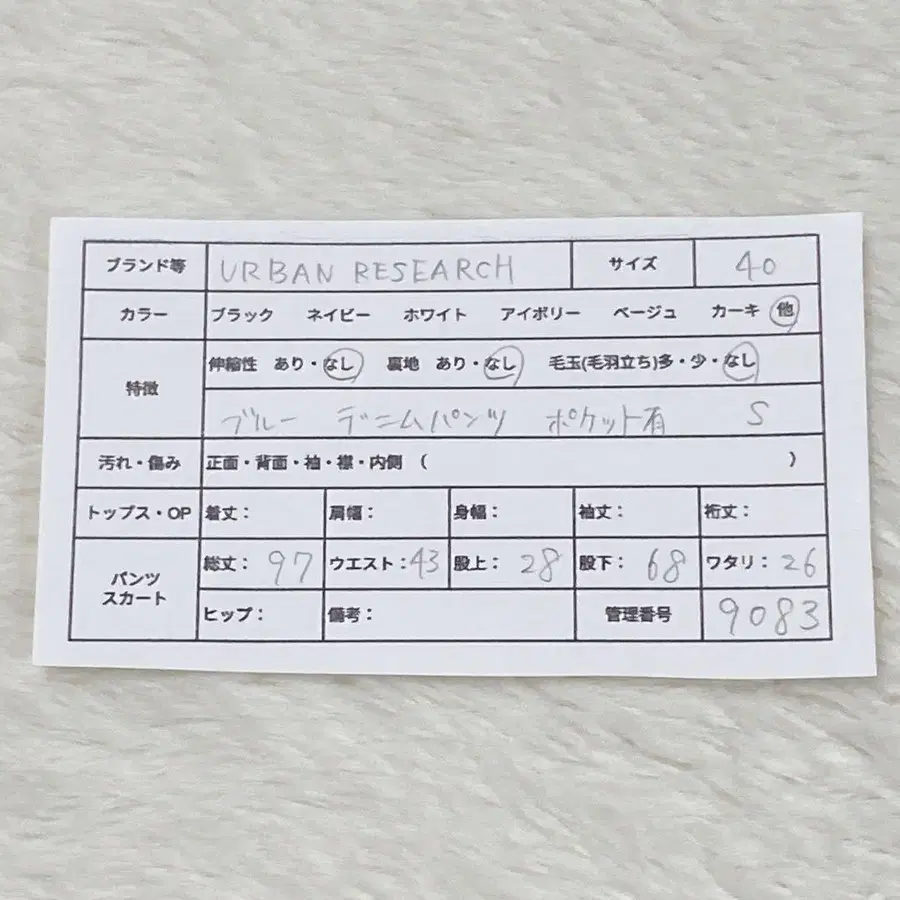 ブランド等 URBAN RESEARCH サイズ 40
カラー ブラック ネイビー ホワイト アイボリー ベージュ カーキ 他
特徴 伸縮性 あり・なし 裏地 あり・なし 毛玉(毛羽立ち)多・少・なし
ブルー デニムパンツ ポケット有 S
汚れ・傷み 正面・背面・袖・襟・内側 ( )
トップス・OP 着丈: 肩幅: 身幅: 袖丈: 裄丈:
パンツ スカート 総丈: 97 ウエスト:43 股上: 28 股下: 68 ワタリ: 26
ヒップ: 備考: 管理番号 9083